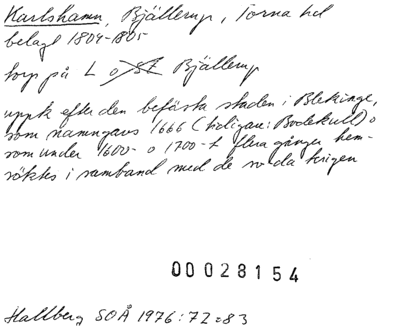 Karlshamn, Bjällerup, Torna hd
belagt 1804-1805
torp på L o St Bjällerup
uppk efter den befästa staden i Blekinge,
som namngavs 1666 (tidigare: Bodekull) o
som under 1600- o 1700-t flera gånger hem-
söktes i samband med de sv da krigen
00028154
Hallberg SOÅ 1976:72-83